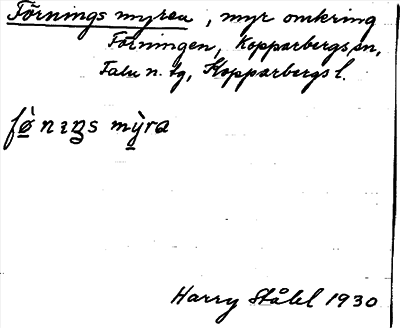 Förnings myren, myr omkring
Förningen, Kopparbergs sn,
Falu n. tg, Kopparbergs l.
fø̀nıŋs mỳra
Harry Ståhl 1930